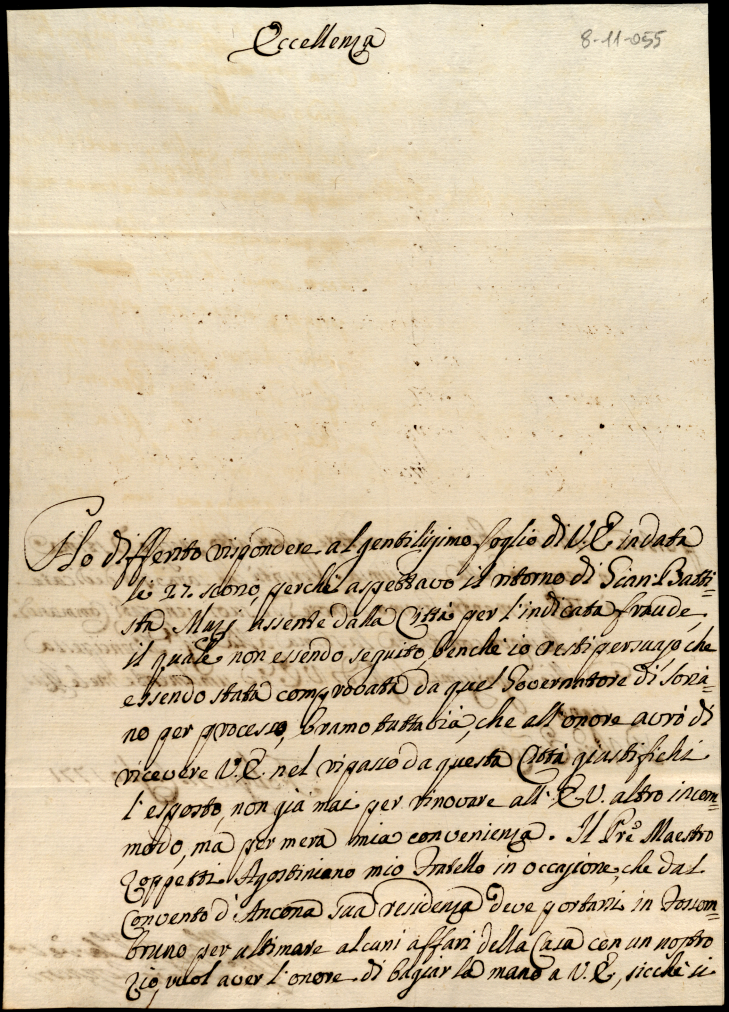 Eccellenza
8-11-055
Ho differito rispondere al gentilissimo foglio di V.E. in data
li 27. scorso, perchè aspettavo il ritorno di Gian: Batti=
sta Muzj assente dalla Città per l'indicata fraude,
il quale non essendo seguito, benchè io resti persuaso, che
essendo stata comprovata da quel Governatore di Soria=
no per processo, bramo tuttavia, che all'onore avrò di
ricevere V.E. nel ripasso da questa Città giustifichi
l'esposto, non già mai per rinovare all'E.V. altro incom=
modo, ma per mera mia convenienza. Il Prẽ Maestro
Zoppetti Agostiniano mio Fratello in occasione, che dal
Convento d'Ancona sua residenza deve portarsi in Fossom=
bruno per ultimare alcuni affari della Casa con un nostro
Zio, vuol aver l'onore di bagiar la mano a V.E., sicchè si